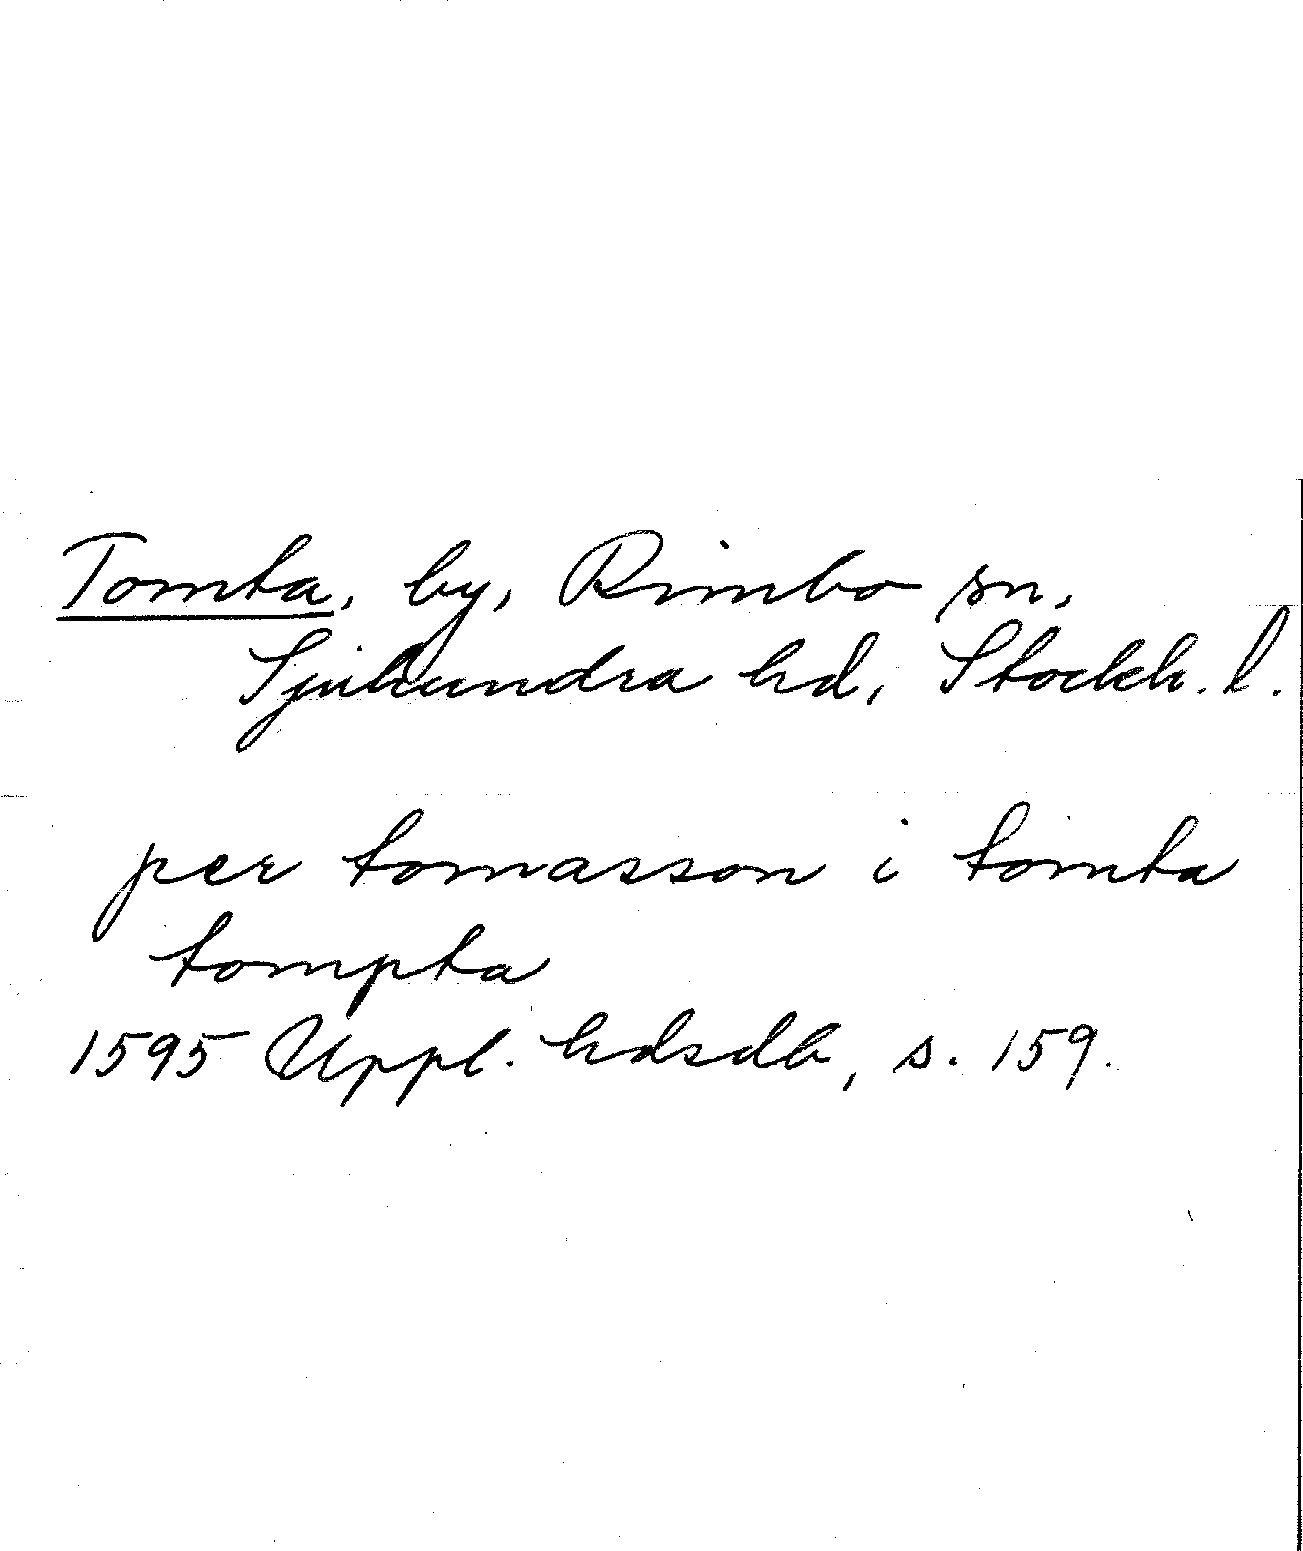 Tomta, by, Rimbo sn,
Sjuhundra hd, Stockh. l.
per tomasson i tomta
tompta
1595 Uppl. hdsdb, s. 159.